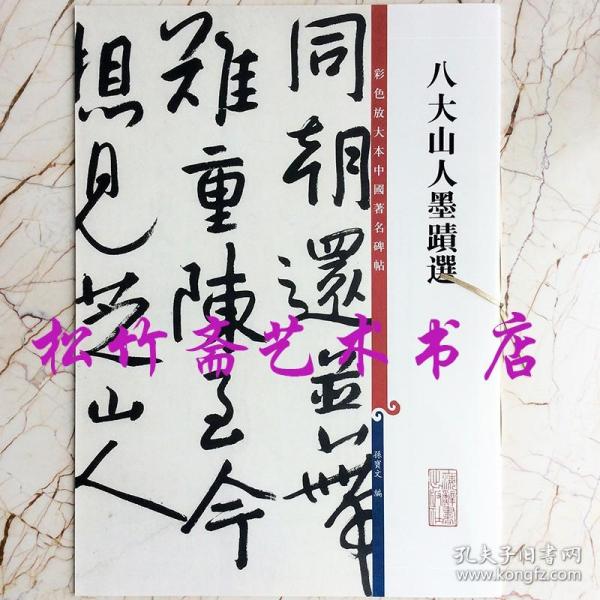 八大山人墨蹟選
彩色放大本中國著名碑帖
孫寶文 編
同朝還並蒂
難重陳至今
想見芝山人
松竹斋艺术书店
孔夫子旧书网
www.kongfz.com